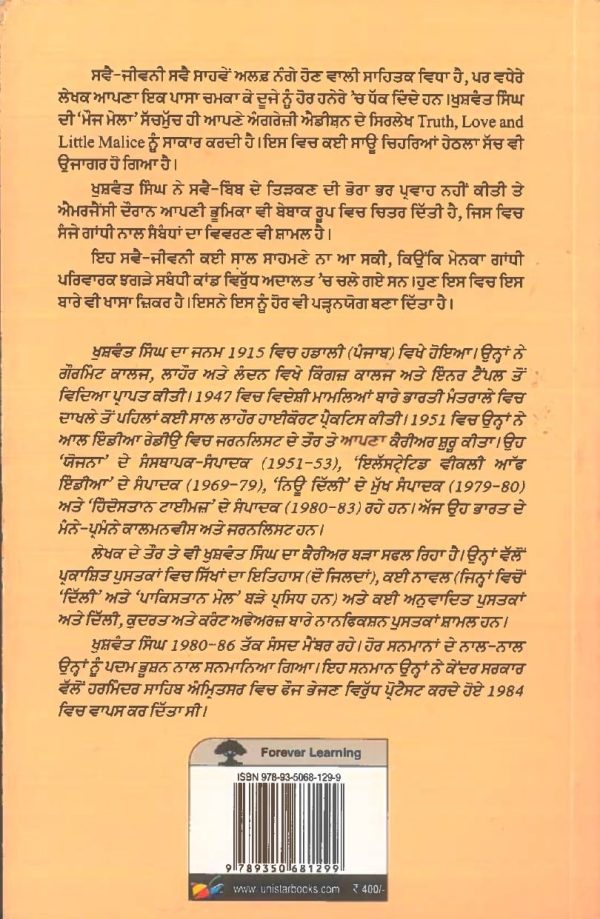 ਸਵੈ-ਜੀਵਨੀ ਸਵੈ ਸਾਹਵੇਂ ਅਲਫ਼ ਨੰਗੇ ਹੋਣ ਵਾਲੀ ਸਾਹਿਤਕ ਵਿਧਾ ਹੈ, ਪਰ ਵਧੇਰੇ
ਲੇਖਕ ਆਪਣਾ ਇਕ ਪਾਸਾ ਚਮਕਾ ਕੇ ਦੂਜੇ ਨੂੰ ਹੋਰ ਹਨੇਰੇ 'ਚ ਧੱਕ ਦਿੰਦੇ ਹਨ। ਖੁਸ਼ਵੰਤ ਸਿੰਘ
ਦੀ 'ਮੌਜ ਮੇਲਾ' ਸੱਚਮੁੱਚ ਹੀ ਆਪਣੇ ਅੰਗਰੇਜ਼ੀ ਐਡੀਸ਼ਨ ਦੇ ਸਿਰਲੇਖ Truth, Love and
Little Malice ਨੂੰ ਸਾਕਾਰ ਕਰਦੀ ਹੈ। ਇਸ ਵਿਚ ਕਈ ਸਾਊ ਚਿਹਰਿਆਂ ਹੇਠਲਾ ਸੱਚ ਵੀ
ਉਜਾਗਰ ਹੋ ਗਿਆ ਹੈ।
ਖੁਸ਼ਵੰਤ ਸਿੰਘ ਨੇ ਸਵੈ-ਬਿੰਬ ਦੇ ਤਿੜਕਣ ਦੀ ਭੋਰਾ ਭਰ ਪ੍ਰਵਾਹ ਨਹੀਂ ਕੀਤੀ ਤੇ
ਐਮਰਜੈਂਸੀ ਦੌਰਾਨ ਆਪਣੀ ਭੂਮਿਕਾ ਵੀ ਬੇਬਾਕ ਰੂਪ ਵਿਚ ਚਿਤਰ ਦਿੱਤੀ ਹੈ, ਜਿਸ ਵਿਚ
ਸੰਜੇ ਗਾਂਧੀ ਨਾਲ ਸੰਬੰਧਾਂ ਦਾ ਵਿਵਰਣ ਵੀ ਸ਼ਾਮਲ ਹੈ।
ਇਹ ਸਵੈ-ਜੀਵਨੀ ਕਈ ਸਾਲ ਸਾਹਮਣੇ ਨਾ ਆ ਸਕੀ, ਕਿਉਂਕਿ ਮੇਨਕਾ ਗਾਂਧੀ
ਪਰਿਵਾਰਕ ਝਗੜੇ ਸਬੰਧੀ ਕਾਂਡ ਵਿਰੁੱਧ ਅਦਾਲਤ 'ਚ ਚਲੇ ਗਏ ਸਨ। ਹੁਣ ਇਸ ਵਿਚ ਇਸ
ਬਾਰੇ ਵੀ ਖਾਸਾ ਜ਼ਿਕਰ ਹੈ। ਇਸਨੇ ਇਸ ਨੂੰ ਹੋਰ ਵੀ ਪੜ੍ਹਨਯੋਗ ਬਣਾ ਦਿੱਤਾ ਹੈ।
ਖੁਸ਼ਵੰਤ ਸਿੰਘ ਦਾ ਜਨਮ 1915 ਵਿਚ ਹਡਾਲੀ (ਪੰਜਾਬ) ਵਿਖੇ ਹੋਇਆ। ਉਨ੍ਹਾਂ ਨੇ
ਗੌਰਮਿੰਟ ਕਾਲਜ, ਲਾਹੌਰ ਅਤੇ ਲੰਦਨ ਵਿਖੇ ਕਿੰਗਜ਼ ਕਾਲਜ ਅਤੇ ਇਨਰ ਟੈਂਪਲ ਤੋਂ
ਵਿਦਿਆ ਪ੍ਰਾਪਤ ਕੀਤੀ। 1947 ਵਿਚ ਵਿਦੇਸ਼ੀ ਮਾਮਲਿਆਂ ਬਾਰੇ ਭਾਰਤੀ ਮੰਤਰਾਲੇ ਵਿਚ
ਦਾਖਲੇ ਤੋਂ ਪਹਿਲਾਂ ਕਈ ਸਾਲ ਲਾਹੌਰ ਹਾਈਕੋਰਟ ਪ੍ਰੈਕਟਿਸ ਕੀਤੀ। 1951 ਵਿਚ ਉਨ੍ਹਾਂ ਨੇ
ਆਲ ਇੰਡੀਆ ਰੇਡੀਉ ਵਿਚ ਜਰਨਲਿਸਟ ਦੇ ਤੌਰ ਤੇ ਆਪਣਾ ਕੈਰੀਅਰ ਸ਼ੁਰੂ ਕੀਤਾ। ਉਹ
'ਯੋਜਨਾ' ਦੇ ਸੰਸਥਾਪਕ-ਸੰਪਾਦਕ (1951-53), 'ਇਲੱਸਟ੍ਰੇਟਿਡ ਵੀਕਲੀ ਆਫ
ਇੰਡੀਆ' ਦੇ ਸੰਪਾਦਕ (1969-79), 'ਨਿਊ ਦਿੱਲੀ' ਦੇ ਮੁੱਖ ਸੰਪਾਦਕ (1979-80)
ਅਤੇ 'ਹਿੰਦੋਸਤਾਨ ਟਾਈਮਜ਼' ਦੇ ਸੰਪਾਦਕ (1980-83) ਰਹੇ ਹਨ। ਅੱਜ ਉਹ ਭਾਰਤ ਦੇ
ਮੰਨੇ-ਪ੍ਰਮੰਨੇ ਕਾਲਮਨਵੀਸ ਅਤੇ ਜਰਨਲਿਸਟ ਹਨ।
ਲੇਖਕ ਦੇ ਤੌਰ ਤੇ ਵੀ ਖੁਸ਼ਵੰਤ ਸਿੰਘ ਦਾ ਕੈਰੀਅਰ ਬੜਾ ਸਫਲ ਰਿਹਾ ਹੈ। ਉਨ੍ਹਾਂ ਵੱਲੋਂ
ਪ੍ਰਕਾਸ਼ਿਤ ਪੁਸਤਕਾਂ ਵਿਚ ਸਿੱਖਾਂ ਦਾ ਇਤਿਹਾਸ (ਦੋ ਜਿਲਦਾਂ), ਕਈ ਨਾਵਲ (ਜਿਨ੍ਹਾਂ ਵਿਚੋਂ
'ਦਿੱਲੀ' ਅਤੇ 'ਪਾਕਿਸਤਾਨ ਮੇਲ' ਬੜੇ ਪ੍ਰਸਿਧ ਹਨ) ਅਤੇ ਕਈ ਅਨੁਵਾਦਿਤ ਪੁਸਤਕਾਂ
ਅਤੇ ਦਿੱਲੀ, ਕੁਦਰਤ ਅਤੇ ਕਰੰਟ ਅਫੇਅਰਜ਼ ਬਾਰੇ ਨਾਨਫਿਕਸ਼ਨ ਪੁਸਤਕਾਂ ਸ਼ਾਮਲ ਹਨ।
ਖੁਸ਼ਵੰਤ ਸਿੰਘ 1980-86 ਤੱਕ ਸੰਸਦ ਮੈਂਬਰ ਰਹੇ। ਹੋਰ ਸਨਮਾਨਾਂ ਦੇ ਨਾਲ-ਨਾਲ
ਉਨ੍ਹਾਂ ਨੂੰ ਪਦਮ ਭੂਸ਼ਨ ਨਾਲ ਸਨਮਾਨਿਆ ਗਿਆ। ਇਹ ਸਨਮਾਨ ਉਨ੍ਹਾਂ ਨੇ ਕੇਂਦਰ ਸਰਕਾਰ
ਵੱਲੋਂ ਹਰਮਿੰਦਰ ਸਾਹਿਬ ਅੰਮ੍ਰਿਤਸਰ ਵਿਚ ਫੌਜ ਭੇਜਣ ਵਿਰੁੱਧ ਪ੍ਰੋਟੈਸਟ ਕਰਦੇ ਹੋਏ 1984
ਵਿਚ ਵਾਪਸ ਕਰ ਦਿੱਤਾ ਸੀ।
Forever Learning
ISBN 978-93-5068-129-9
9 789350 681299
www.unistarbooks.com ₹ 400/-